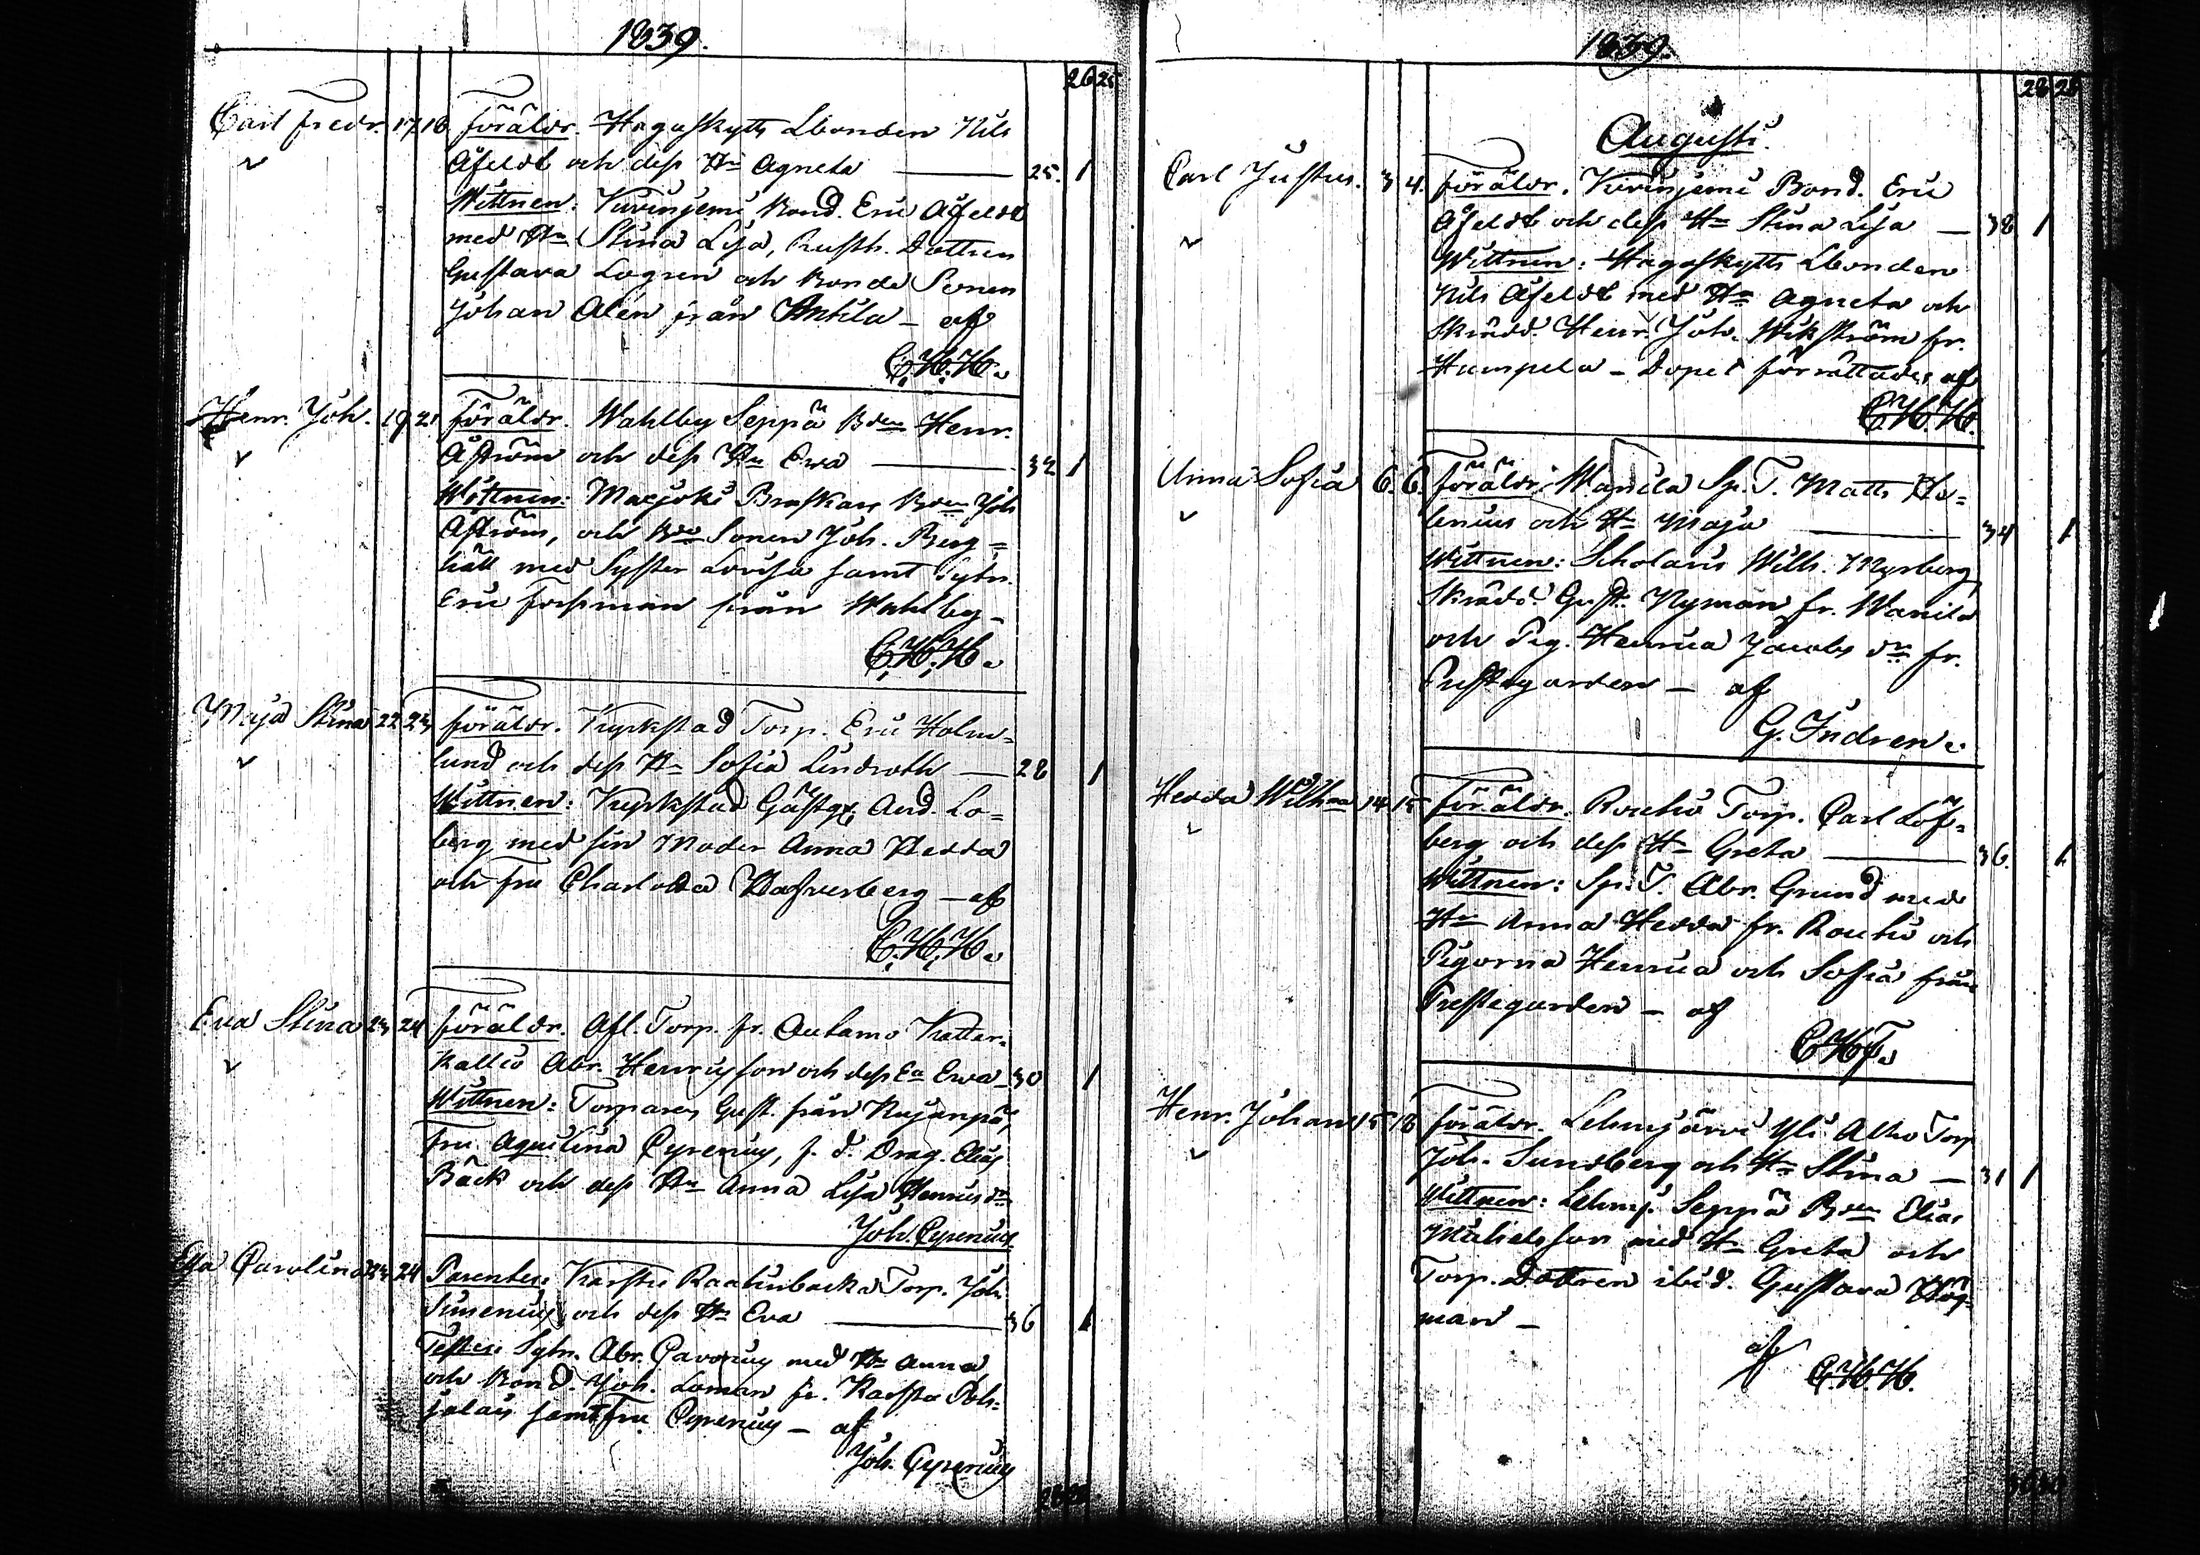 1839.
26 25
Carl Fredr. 17 18 Föräldr. Hagaskytts Lbonden Nils
Åfeldt och dess Hu Agneta — 25. 1
Wittnen: Kurinjemi Bond. Eric Åfeldt
med Hu Stina Lisa, Rusth. Dottren
Gustava Logren och Bonde Sonen
Johan Alén från Anttila — af
C.H.H.
Henr. Joh. 19 21 Föräldr. Wahlby Seppä Bden Henr.
Åström och dess Hu Ewa — 32 1
Wittnen: Marjoki Braskars Bden Joh
Åström, och Bde Sonen Joh. Berg=
häll med Syster Lovisa samt Sytn.
Eric Forsman från Wahlby —
C.H.H.
Maja Stina 22 23 Föräldr. Kyrkstad Torp. Eric Holm=
lund och dess Hu Sofia Lindroth — 28 1
Wittnen: Kyrkstad Gästg. And. Lo=
berg med sin Moder Anna Hedda
och fru Charlotta Hafverberg — af
C.H.H.
Eva Stina 23 24 Föräldr. Afl. Torp. fr. Autamo Katter=
kallio Abr. Henricsson och dess Ea Ewa — 30 1
Wittnen: Torparen Gust. från Rujanpä,
Fru Aquilina Cyrenius, f. d. Drag. Elias
Bäck och dess Hu Anna Lisa Henricsdr
Joh. Cyrenius
Carolina 23 24 Parentes: Karstu Raatinbacka Torp. Joh
Simenius och dess Hu Eva — 36 1
Testes: Sytn. Abr. Pavorius med Hu Anna
och Bond. Joh. Loman fr. Karstu Poh=
jalais samt Fru Cyrenius — af
Joh. Cyrenius
1839.
28 28
Augusti.
Carl Justus. 3 4. Föräldr. Kurinjemi Bond. Eric
Åfeldt och dess Hu Stina Lisa — 38 1
Wittnen: Hagaskytts Lbonden
Nils Åfeldt med Hu Agneta och
Skrädd. Henr. Joh. Wikström fr.
Humpela — Dopet förrättades af
C.H.H.
Anna Sofia 6. 6. Föräldr. Wanila Sp. T. Matts Ho=
lenius och Hu Maja — 34 1
Wittnen: Scholaris Wilh. Myrberg,
Skrädd. Gust. Nyman fr. Wanila
och Pig. Henrica Jacobs dr fr.
Prestegården — af
G. Indren.
Hedda Wilhma 14 15 Föräldr. Rautio Torp. Carl Löf=
berg och dess Hu Greta — 36. 1
Wittnen: Sp. T. Abr. Grund med
Hu Anna Hedda fr. Rautio och
Pigorna Henrica och Sofia från
Prestegården — af
Henr. Johan 15 18 Föräldr. Lehmjärvi Yli Alho Torp
Joh. Sundberg och Hu Stina — 31 1
Wittnen: Lehmj. Seppä Bden Elias
Michelsson med Hu Greta och
Torp. Dottren ibid. Gustava Hög=
man —
af C.H.H.